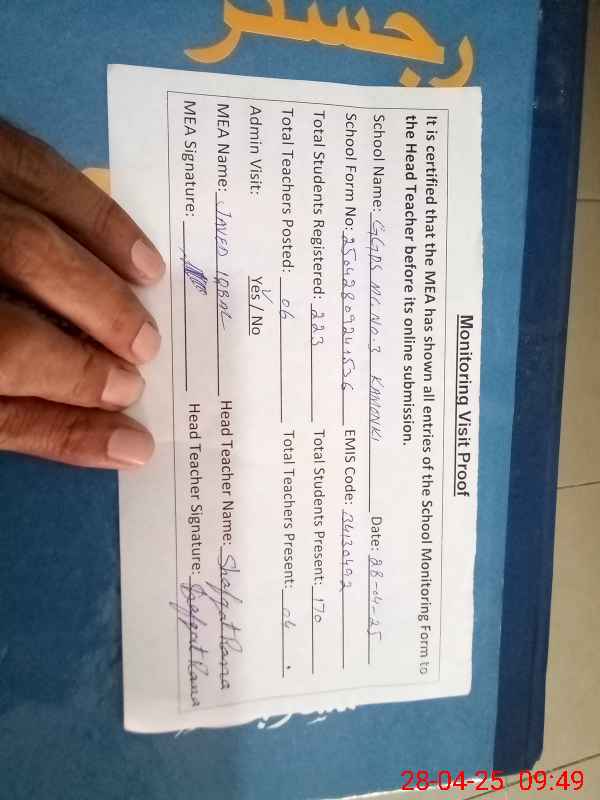 رجسٹر
Monitoring Visit Proof
It is certified that the MEA has shown all entries of the School Monitoring Form to
the Head Teacher before its online submission.
School Name: GGPS MC No.3 KAMONKI Date: 28-04-25
School Form No: 250428092441536 EMIS Code: 34130492
Total Students Registered: 223 Total Students Present: 170
Total Teachers Posted: 06 Total Teachers Present: 06
Admin Visit: Yes / No
MEA Name: JAVED IQBAL Head Teacher Name: Shafqat Rana
MEA Signature: Head Teacher Signature: Shafqat Rana
28-04-25 09:49